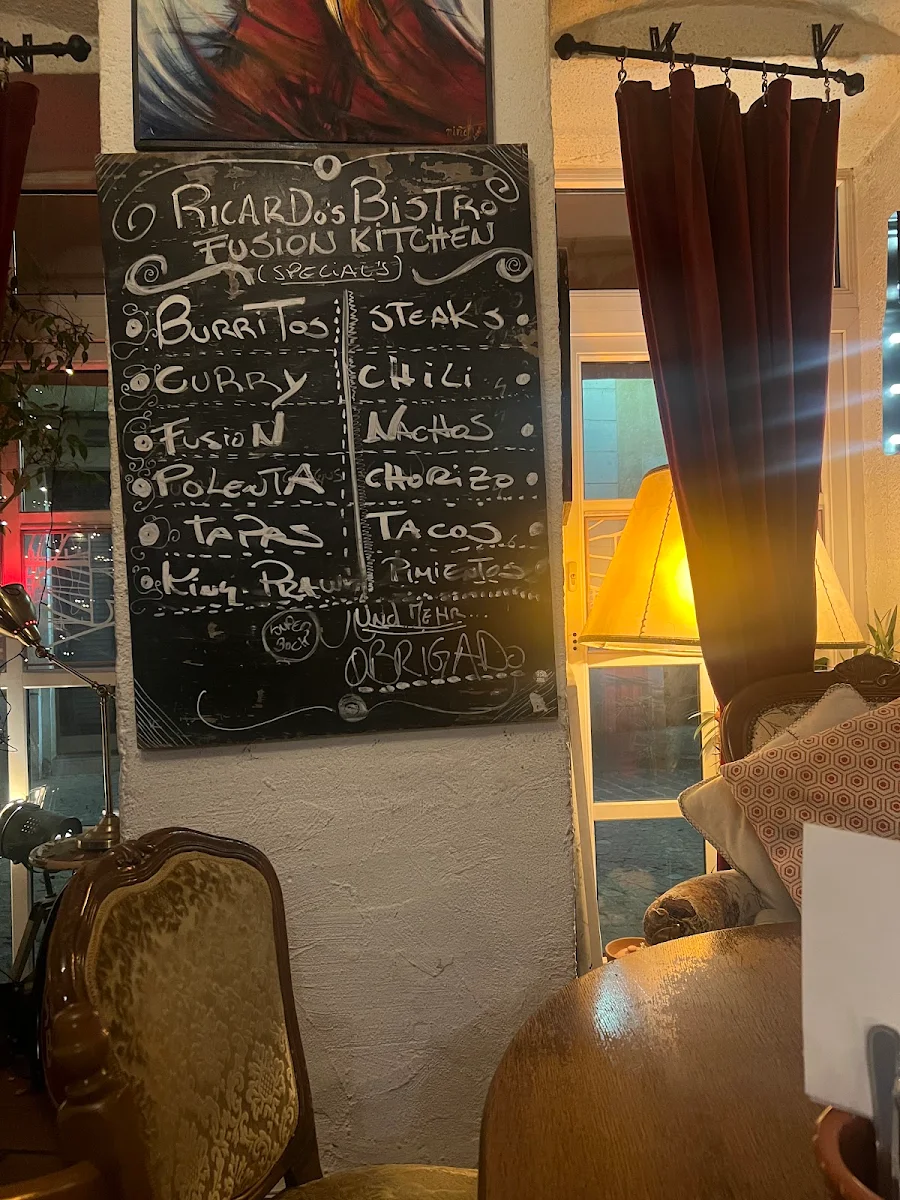 RICARDo's BISTRO
FUSION KITCHEN
(SPECIAL'S)
BURRITOS STEAKS
CURRY CHILI
FUSION NACHOS
POLENTA CHORIZO
TAPAS TACOS
KING PRAWN PIMIENTOS
UND MEHR...
SUPER
BOCK
OBRIGADO